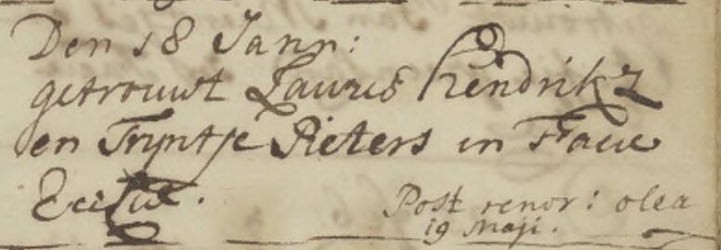 Den 18 Jann:
getrouwt Laurus Hendrikz
en Trijntje Pieters in Facie
Eccl
Post renov: olea
19 Maji.